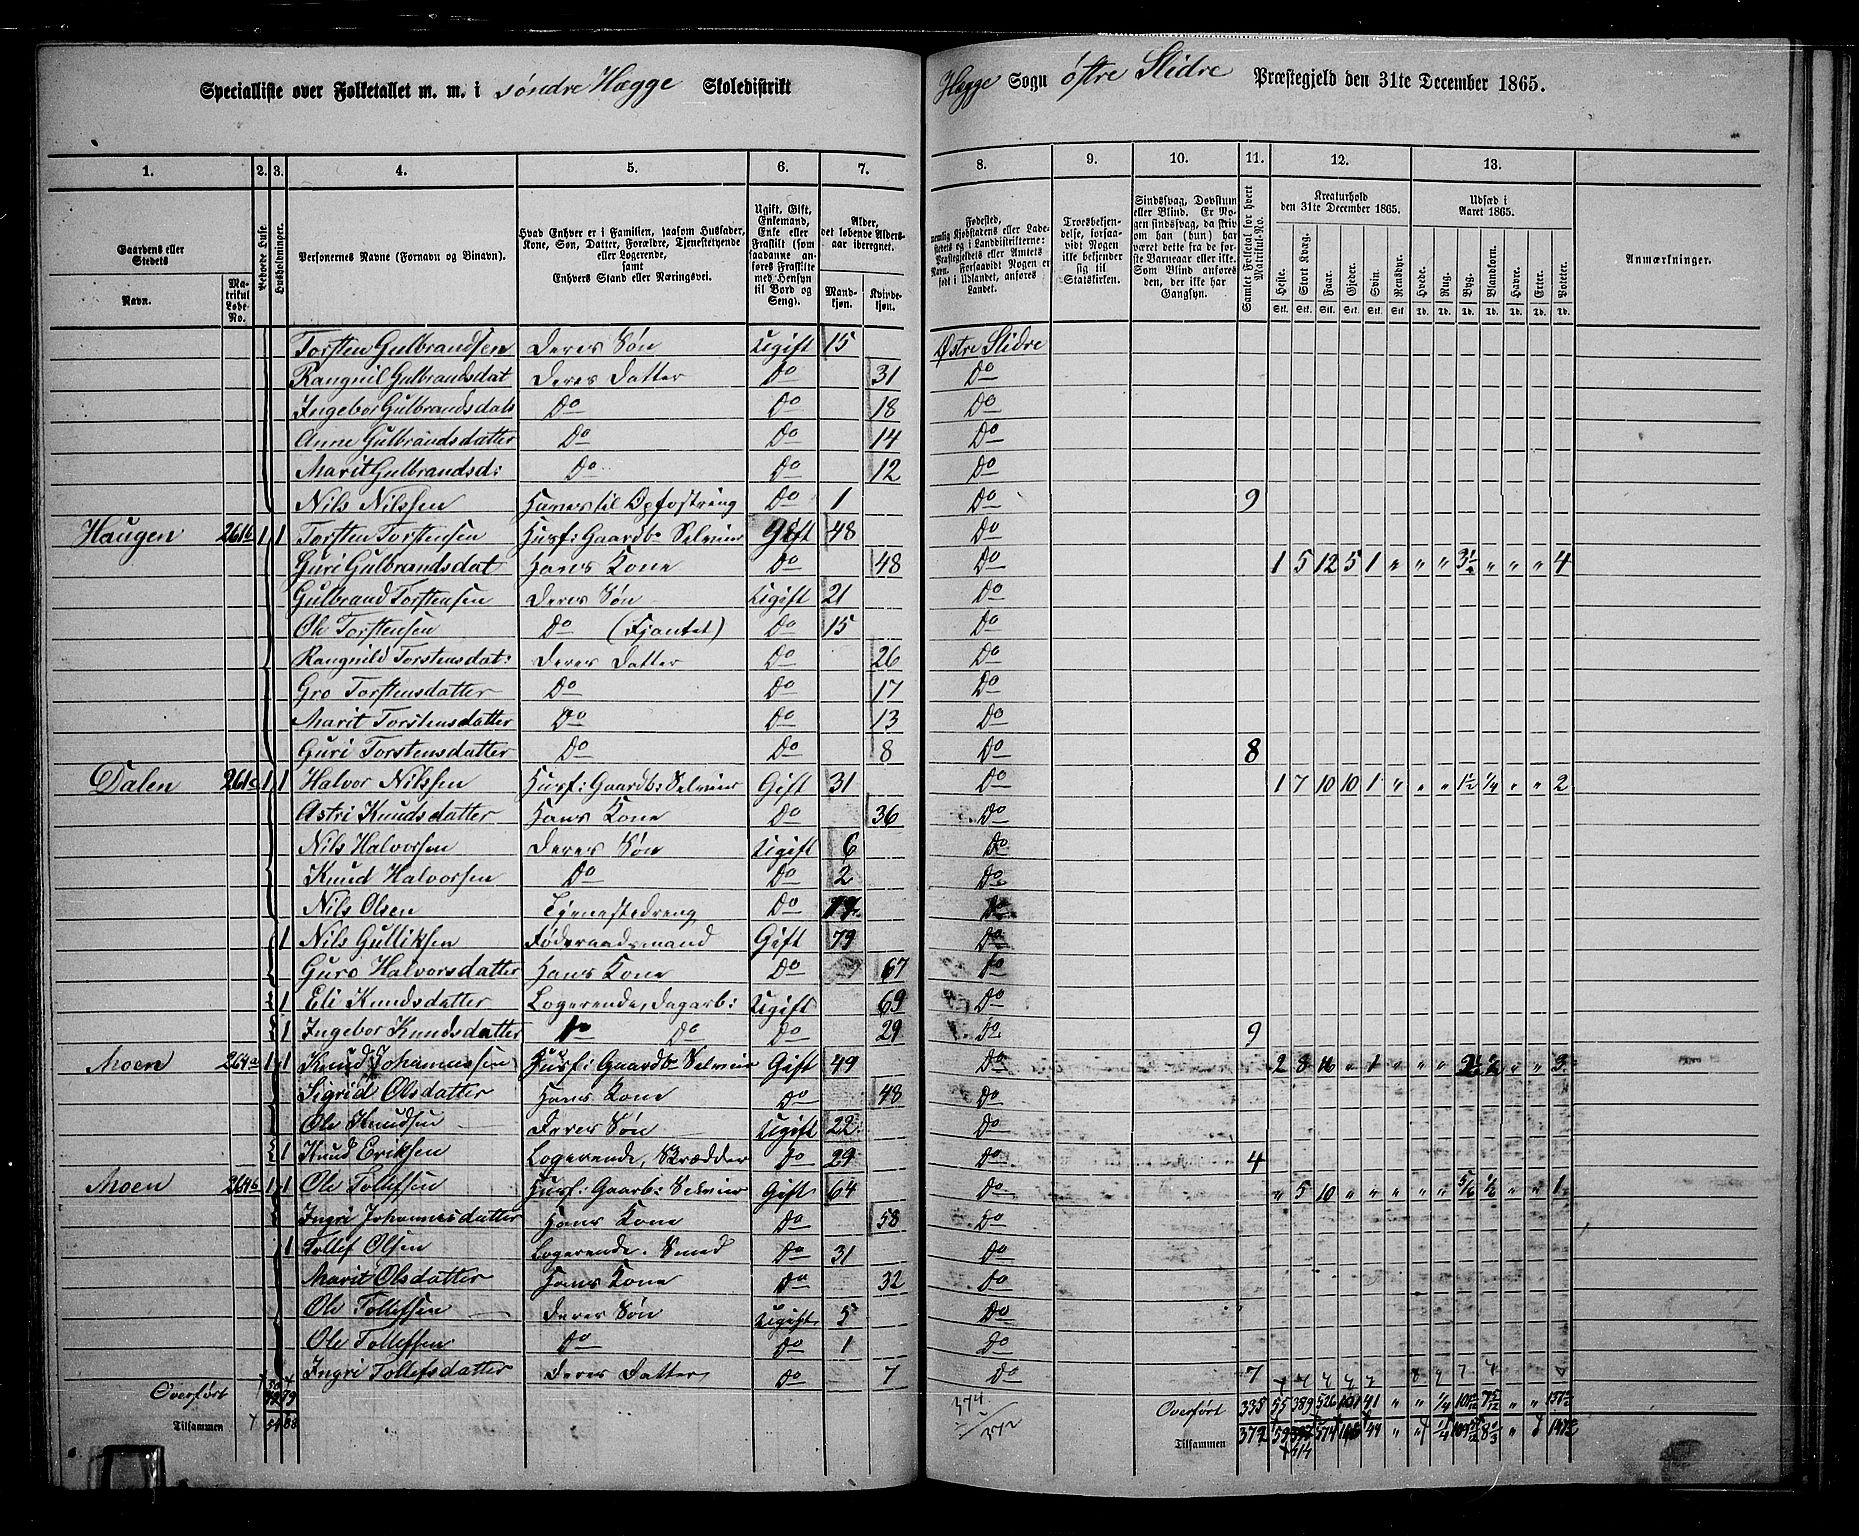 Specialliste over Folketallet m. m. i søndre Hægge Skoledistrikt Hægge Sogn østre Slidre Præstegjeld den 31te December 1865.
1. 2. 3. 4. 5. 6. 7. 8. 9. 10. 11. 12. 13.
Gaardens eller Stedets
Navn. Matrikul Løbe-No.
Beboede Huse.
Husholdninger.
Personernes Navne (Fornavn og Binavn).
Hvad Enhver er i Familien, saasom Husfader, Kone, Søn, Datter, Forældre, Tjenestetyende eller Logerende, samt Enhvers Stand eller Næringsvei.
Ugift, Gift, Enkemand, Enke eller Fraskilt (som saadanne anføres Fraskilte med Hensyn til Bord og Seng).
Alder, det løbende Aldersaar iberegnet.
Mandkjøn. Kvindekjøn.
Fødested, nemlig Kjøbstadens eller Ladestedets og i Landdistrikterne: Præstegjeldets eller Amtets Navn. Forsaavidt Nogen er født i Udlandet, anføres Landet.
Troesbekjendelse, forsaavidt Nogen ikke bekjender sig til Statskirken.
Sindssvag, Døvstum eller Blind. Er Nogen sindssvag, da skriv om han (hun) har været dette fra de første Barneaar eller ikke. Som Blind anføres den, der ikke har Gangsyn.
Samlet Folketal for hvert Matrikul-No.
Kreaturhold den 31te December 1865.
Heste. Stort Kvæg. Faar. Gjeder. Svin. Rensdyr.
Udsæd i Aaret 1865.
Hvede. Rug. Byg. Blandkorn. Havre. Erter. Poteter.
Stk. Stk. Stk. Stk. Stk. Stk. Td. Td. Td. Td. Td. Td. Td.
Anmærkninger.
Torsten Gulbrandsen Deres Søn Ugift 15 Østre Slidre
Rangnil Gulbrandsdat Deres Datter Do 31 Do
Ingebor Gulbrandsdat Do Do 18 Do
Anne Gulbrandsdatter Do Do 14 Do
Marit Gulbrandsd: Do Do 12 Do
Nils Nilssen Hanes til Opfostring Do 1 Do 9
Haugen 261b 1 1 Torsten Torstensen Husf: Gaardb: Selveier Gift 48 Do
Guri Gulbrandsdat Hans Kone Do 48 Do 1 5 12 5 1 " " " 3½ " " " 4
Gulbrand Torstensen Deres Søn Ugift 21 Do
Ole Torstensen Do (Fjantet) Do 15 Do
Rangnild Torstensdat: Deres Datter Do 26 Do
Gro Torstensdatter Do Do 17 Do
Marit Torstensdatter Do Do 13 Do
Guri Torstensdatter Do Do 8 Do 8
Dalen 261c 1 1 Halvor Nilssen Husf: Gaardb: Selveier Gift 31 Do 1 7 10 10 1 " " " 1½ ¼ " " 2
Astri Knudsdatter Hans Kone Do 36 Do
Nils Halvorsen Deres Søn Ugift 6 Do
Knud Halvorsen Do Do 2 Do
Nils Olsen Tjenestedreng Do Do
1 Nils Gulliksen Föderaadsmand Gift 79 Do
Guro Halvorsdatter Hans Kone Do 67 Do
1 Eli Knudsdatter Logerende, dagarb: Ugift 69 Do
1 Ingebor Knudsdatter Do Do Do 29 Do 9
Moen 264a 1 1 Knud Johannessen Husf: Gaardb: Selveier Gift 49 Do 2 8 16 " 1 " " " 2½ ½ " " 3
Sigrid Olsdatter Hans Kone Do 48 Do
Ole Knudsen Deres Søn Ugift 22 Do
1 Knud Eriksen Logerende, Skrædder Do 29 Do 4
Moen 264b 1 1 Ole Tollefsen Husf: Gaarb: Selveier Gift 64 Do " 5 10 " " " " " 5/6 ½ " " 1
Ingri Johannesdatter Hans Kone Do 58 Do
1 Tollef Olsen Logerende. Smed Do 31 Do
Marit Olsdatter Hans Kone Do 32 Do
Ole Tollefsen Deres Søn Ugift 5 Do
Ole Tollefsen Do Do 1 Do
Ingri Tollefsdatter Deres Datter Do 7 Do 7
Overført 79 374 Overført 335 55 389 526 101 41 " " ¼
Tilsammen 372 Tilsammen 372 59 574 44 " "
414